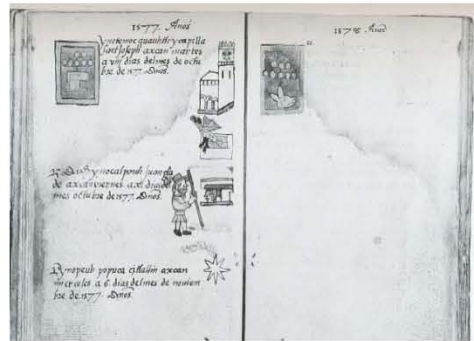 1577. Años
Ynotemoc quauhtli ycapilla
sant Joseph axcan martes
a viii dias del mes de octu
bre de 1577. Años.
de axcan viernes a xi dias del
mes octubre de 1577. Años.
Ynopeuh popoca citlalin axcan
miercoles a 6. dias del mes de nouiem
bre de 1577. Años.
1578. Años